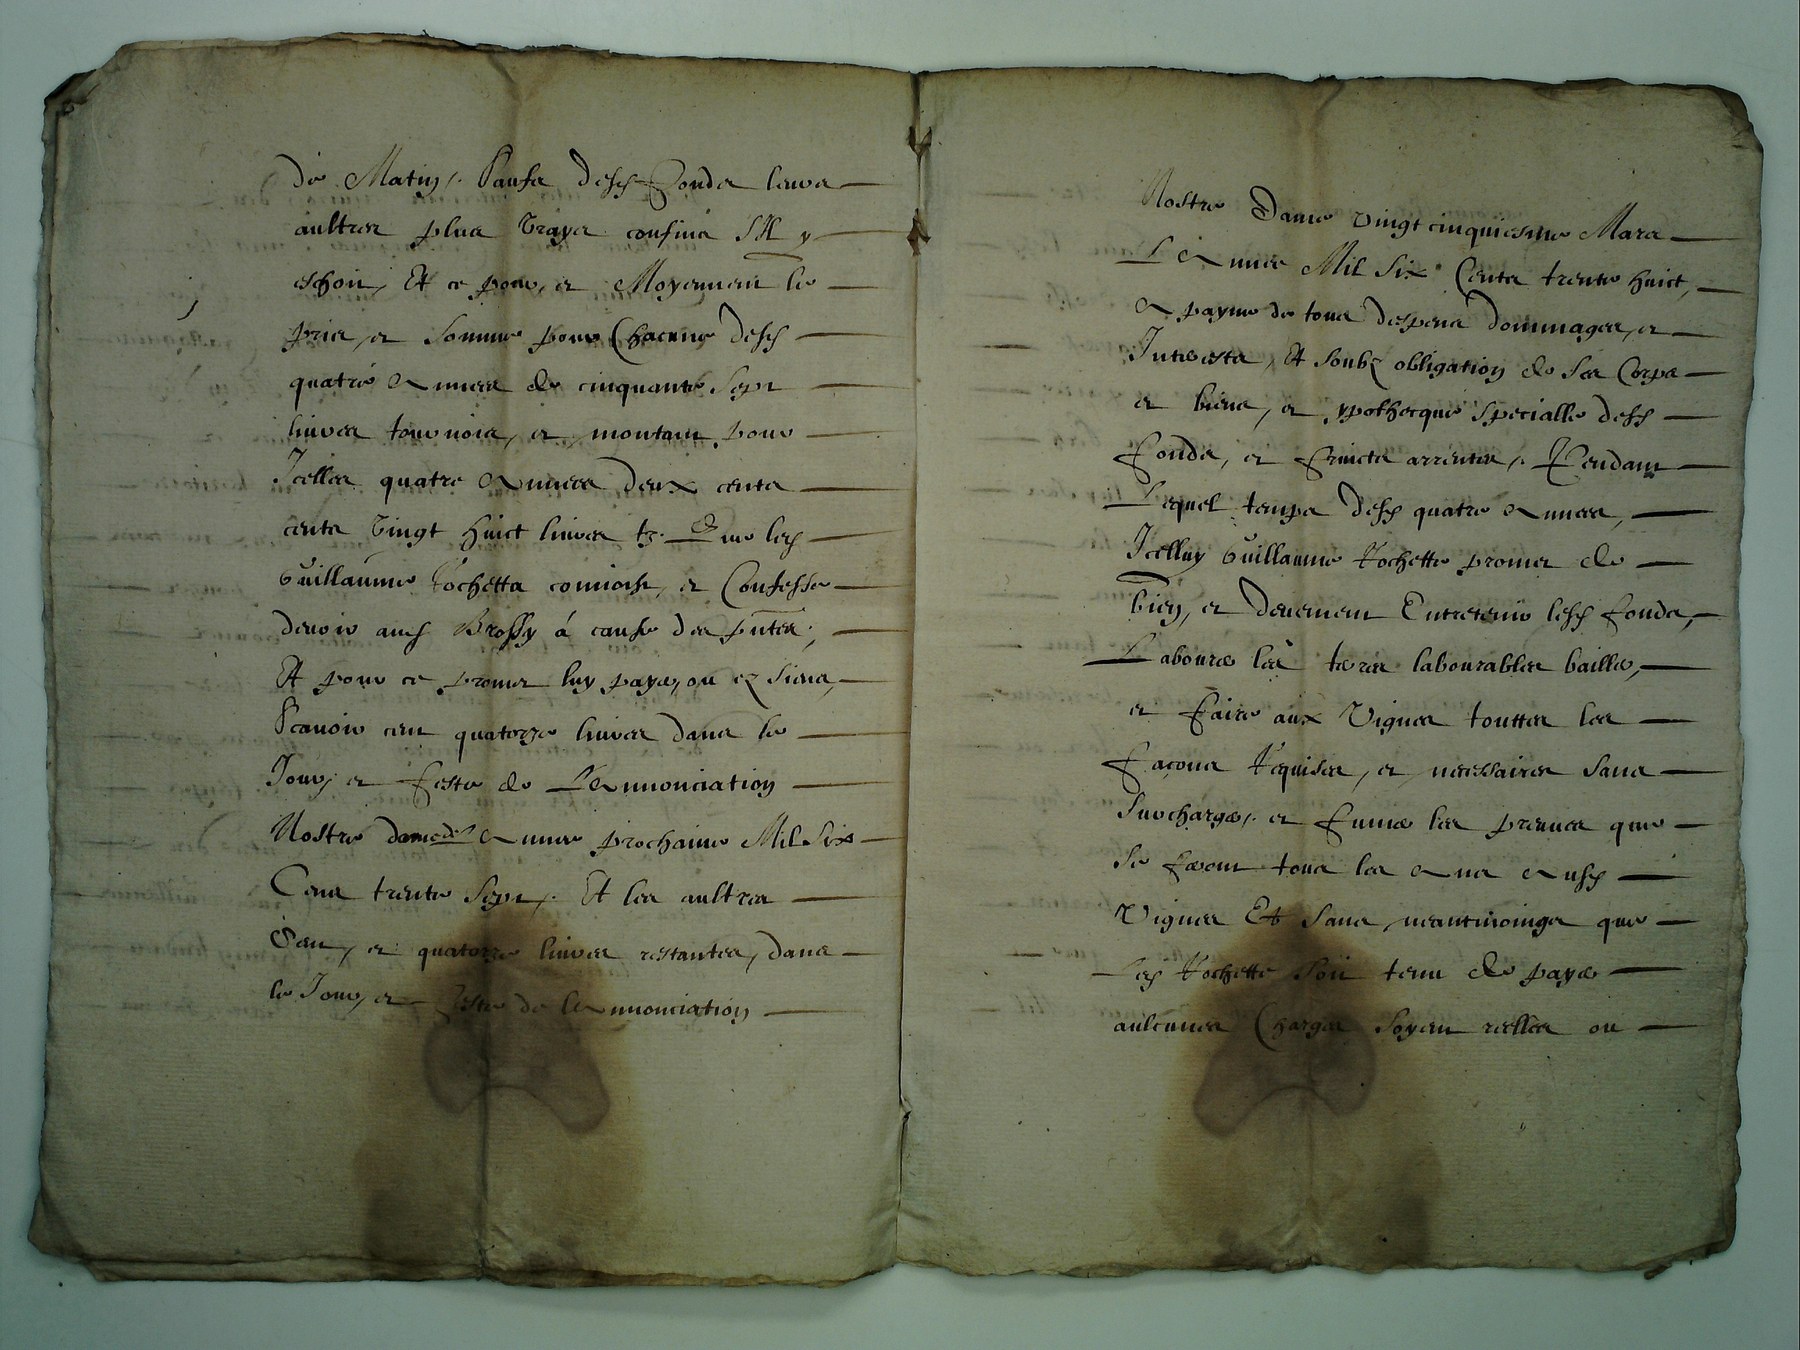 de Matin, Saufz desd fondz leurs
aultres plus vrays confins S'il y
eschoit, Et ce pour, et Moyennent le
pris, et Somme pour Chacune desd
quatre Annees de cinquante Sept
livres tournois, et montant pour
Icelles quatre Annees deux centz
centz vingt huict livres tz. Que led
Guillaume Rochette comioist, et Confesse
devoir aud Brossy á cause des pntes;
Et pour ce promet luy payer, ou ez Siens,
Scavoir cent quatorze livres dans le
Jour, et feste de L'Annonciation
Nostre dame de Annee prochaine Mil Six
Cens trente Sept, Et les aultres
Cent, et quatorze livres restantes, dans
le Jour, et feste de l'Annonciation
Nostre Dame vingt cinquiesme Mars
L'Annee Mil Six Centz trente huict,
A payne de tous despens dommages, et
Interestz, Et soubz obligation de Ses Corps
et biens, et ypothecque Specialle desd
fondz, et fruictz arrentes, Pendant
Lequel temps desd quatre Annees,
Icelluy Guillaume Rochette promet de
bien, et deuement Entretenir lesd fondz,
Labourer les terres labourables bailler,
et faire aux Vignes touttes les
façons Requises, et necessaires Sans
Surcharger, et fumer les preuves que
Se feront tous les Ans Ausd
Vignes Et Sans neantmoings que
Led Rochette Soit tenu de payer
aulcunes Charges Soyent reelles ou